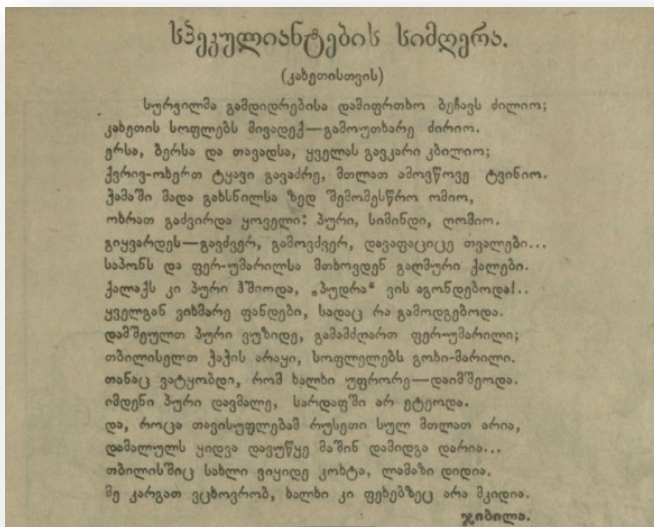 სპეკულიანტების სიმღერა.
(კახეთისთვის)
სურვილმა გამდიდრებისა დამიფრთხო ბეჩავს ძილიო;
კახეთის სოფლებს მივადექ—გამოუთხარე ძირიო.
ერსა, ბერსა და თავადსა, ყველას გავკარი კბილიო;
ქვრივ-ოხერთ ტყავი გავაძრე, მთლათ ამოვწოვე ტვინიო.
ჭამაში მადა გახსნილსა ზედ შემომესწრო ომიო,
ოხრათ გაძვირდა ყოველი: პური, სიმინდი, ღომიო.
გიყვარდეს—გავძვერ, გამოვძვერ, დავაფაციცე თვალები...
საპონს და ფერ-უმარილსა მთხოვდენ გაღმური ქალები.
ქალაქს კი პური ჰშიოდა, „პუდრა“ ვის აგონდებოდა!..
ყველგან ვიხმარე ფანდები, სადაც რა გამოდგებოდა.
დამშეულთ პური ვუზიდე, გამამძღართ ფერ-უმარილი;
თბილისელთ ჭაჭის არაყი, სოფლელებს გოხი-მარილი.
თანაც ვატყობდი, რომ ხალხი უფრორე—დაიმშეოდა.
იმდენი პური დავმალე, სარდაფში არ ეტეოდა.
და, როცა თავისუფლებამ რუსეთი სულ მთლათ არია,
დამალულს ყიდვა დავუწყე მაშინ დამიდგა დარია...
თბილისშიც სახლი ვიყიდე კოხტა, ლამაზი დიდია.
მე კარგათ ვცხოვრობ, ხალხი კი ფეხებზეც არა მკიდია.
ჯიბილა.